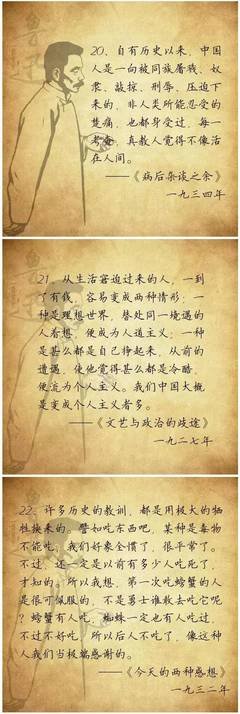 鲁迅
20、自有历史以来，中国
人是一向被同族屠戮、奴
隶、敲掠、刑辱、压迫下
来的，非人类所能忍受的
楚痛，也都身受过，每一
考查，真教人觉得不像活
在人间。
——《病后杂谈之余》
一九三四年
21、从生活窘迫过来的人，一到
了有钱，容易变成两种情形：一
种是理想世界，替处同一境遇的
人着想，便成为人道主义；一种
是甚么都是自己挣起来，从前的
遭遇，使他觉得甚么都是冷酷，
便流为个人主义。我们中国大概
是变成个人主义者多。
——《文艺与政治的歧途》
一九二七年
22、许多历史的教训，都是用极大的牺
牲换来的。譬如吃东西吧，某种是毒物
不能吃，我们好象全惯了，很平常了。
不过，还一定是以前有多少人吃死了，
才知的。所以我想，第一次吃螃蟹的人
是很可佩服的，不是勇士谁敢去吃它呢
？螃蟹有人吃，蜘蛛一定也有人吃过，
不过不好吃，所以后人不吃了，像这种
人我们当极端感谢的。
——《今天的两种感想》
一九三二年